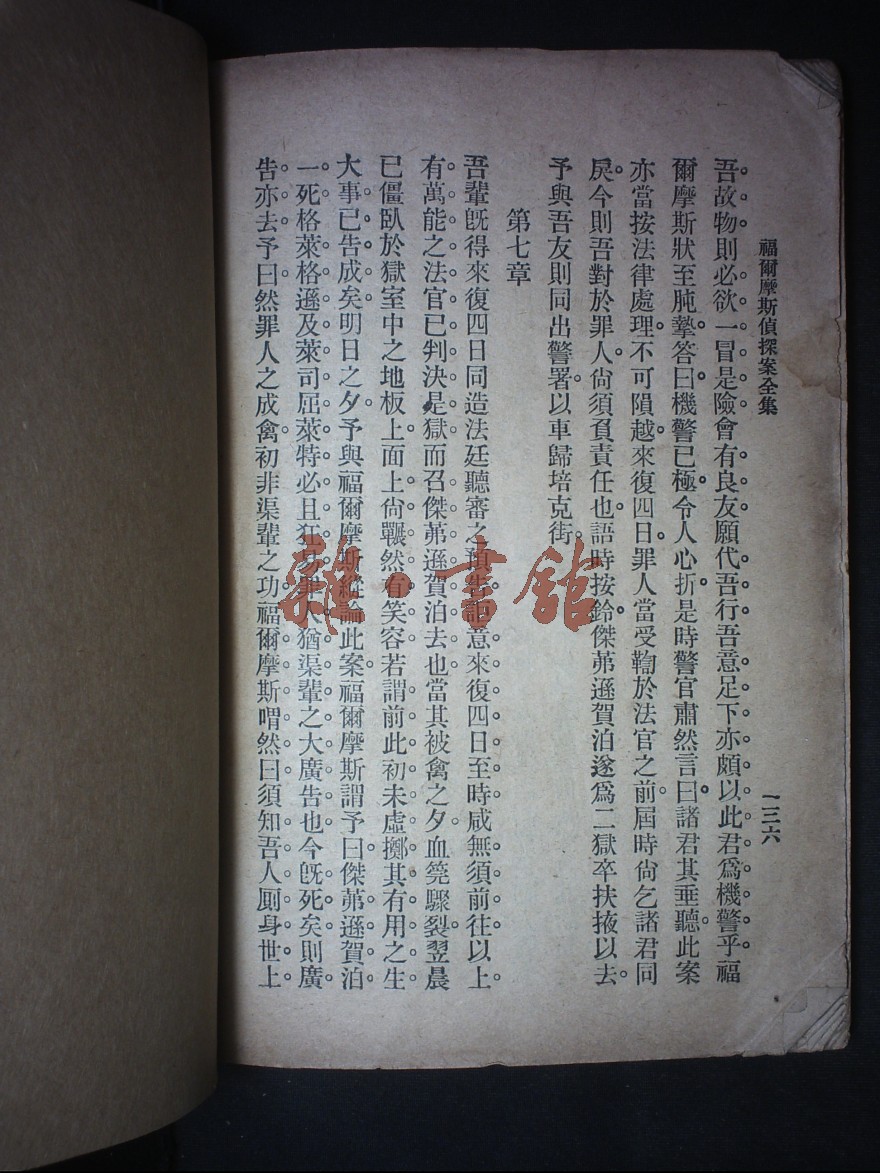 福爾摩斯偵探案全集
一三六
吾故物則必欲一冒是險會有良友願代吾行吾意足下亦頗以此君爲機警乎福
爾摩斯狀至肫摯答曰機警已極令人心折是時警官肅然言曰諸君其垂聽此案
亦當按法律處理不可隕越來復四日罪人當受鞫於法官之前屆時尙乞諸君同
戾今則吾對於罪人尙須負責任也語時按鈴傑茀遜賀泊遂爲二獄卒扶掖以去
予與吾友則同出警署以車歸培克街
第七章
吾輩旣得來復四日同造法廷聽審之預告詎意來復四日至時咸無須前往以上
有萬能之法官已判決是獄而召傑茀遜賀泊去也當其被禽之夕血筦驟裂翌晨
已僵臥於獄室中之地板上面上尙囅然有笑容若謂前此初未虛擲其有用之生
大事已告成矣明日之夕予與福爾摩斯縱論此案福爾摩斯謂予曰傑茀遜賀泊
一死格萊格遜及萊司屈萊特必且狂易罪人猶渠輩之大廣告也今旣死矣則廣
告亦去予曰然罪人之成禽初非渠輩之功福爾摩斯喟然曰須知吾人厠身世上
雜·書館